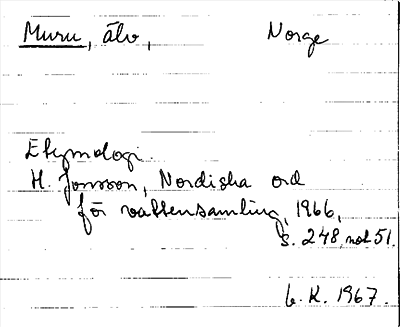 Muru, älv, Norge
Etymologi.
H. Jonsson, Nordiska ord
för vattensamling, 1966,
s. 248, not 51.
L. K. 1967.